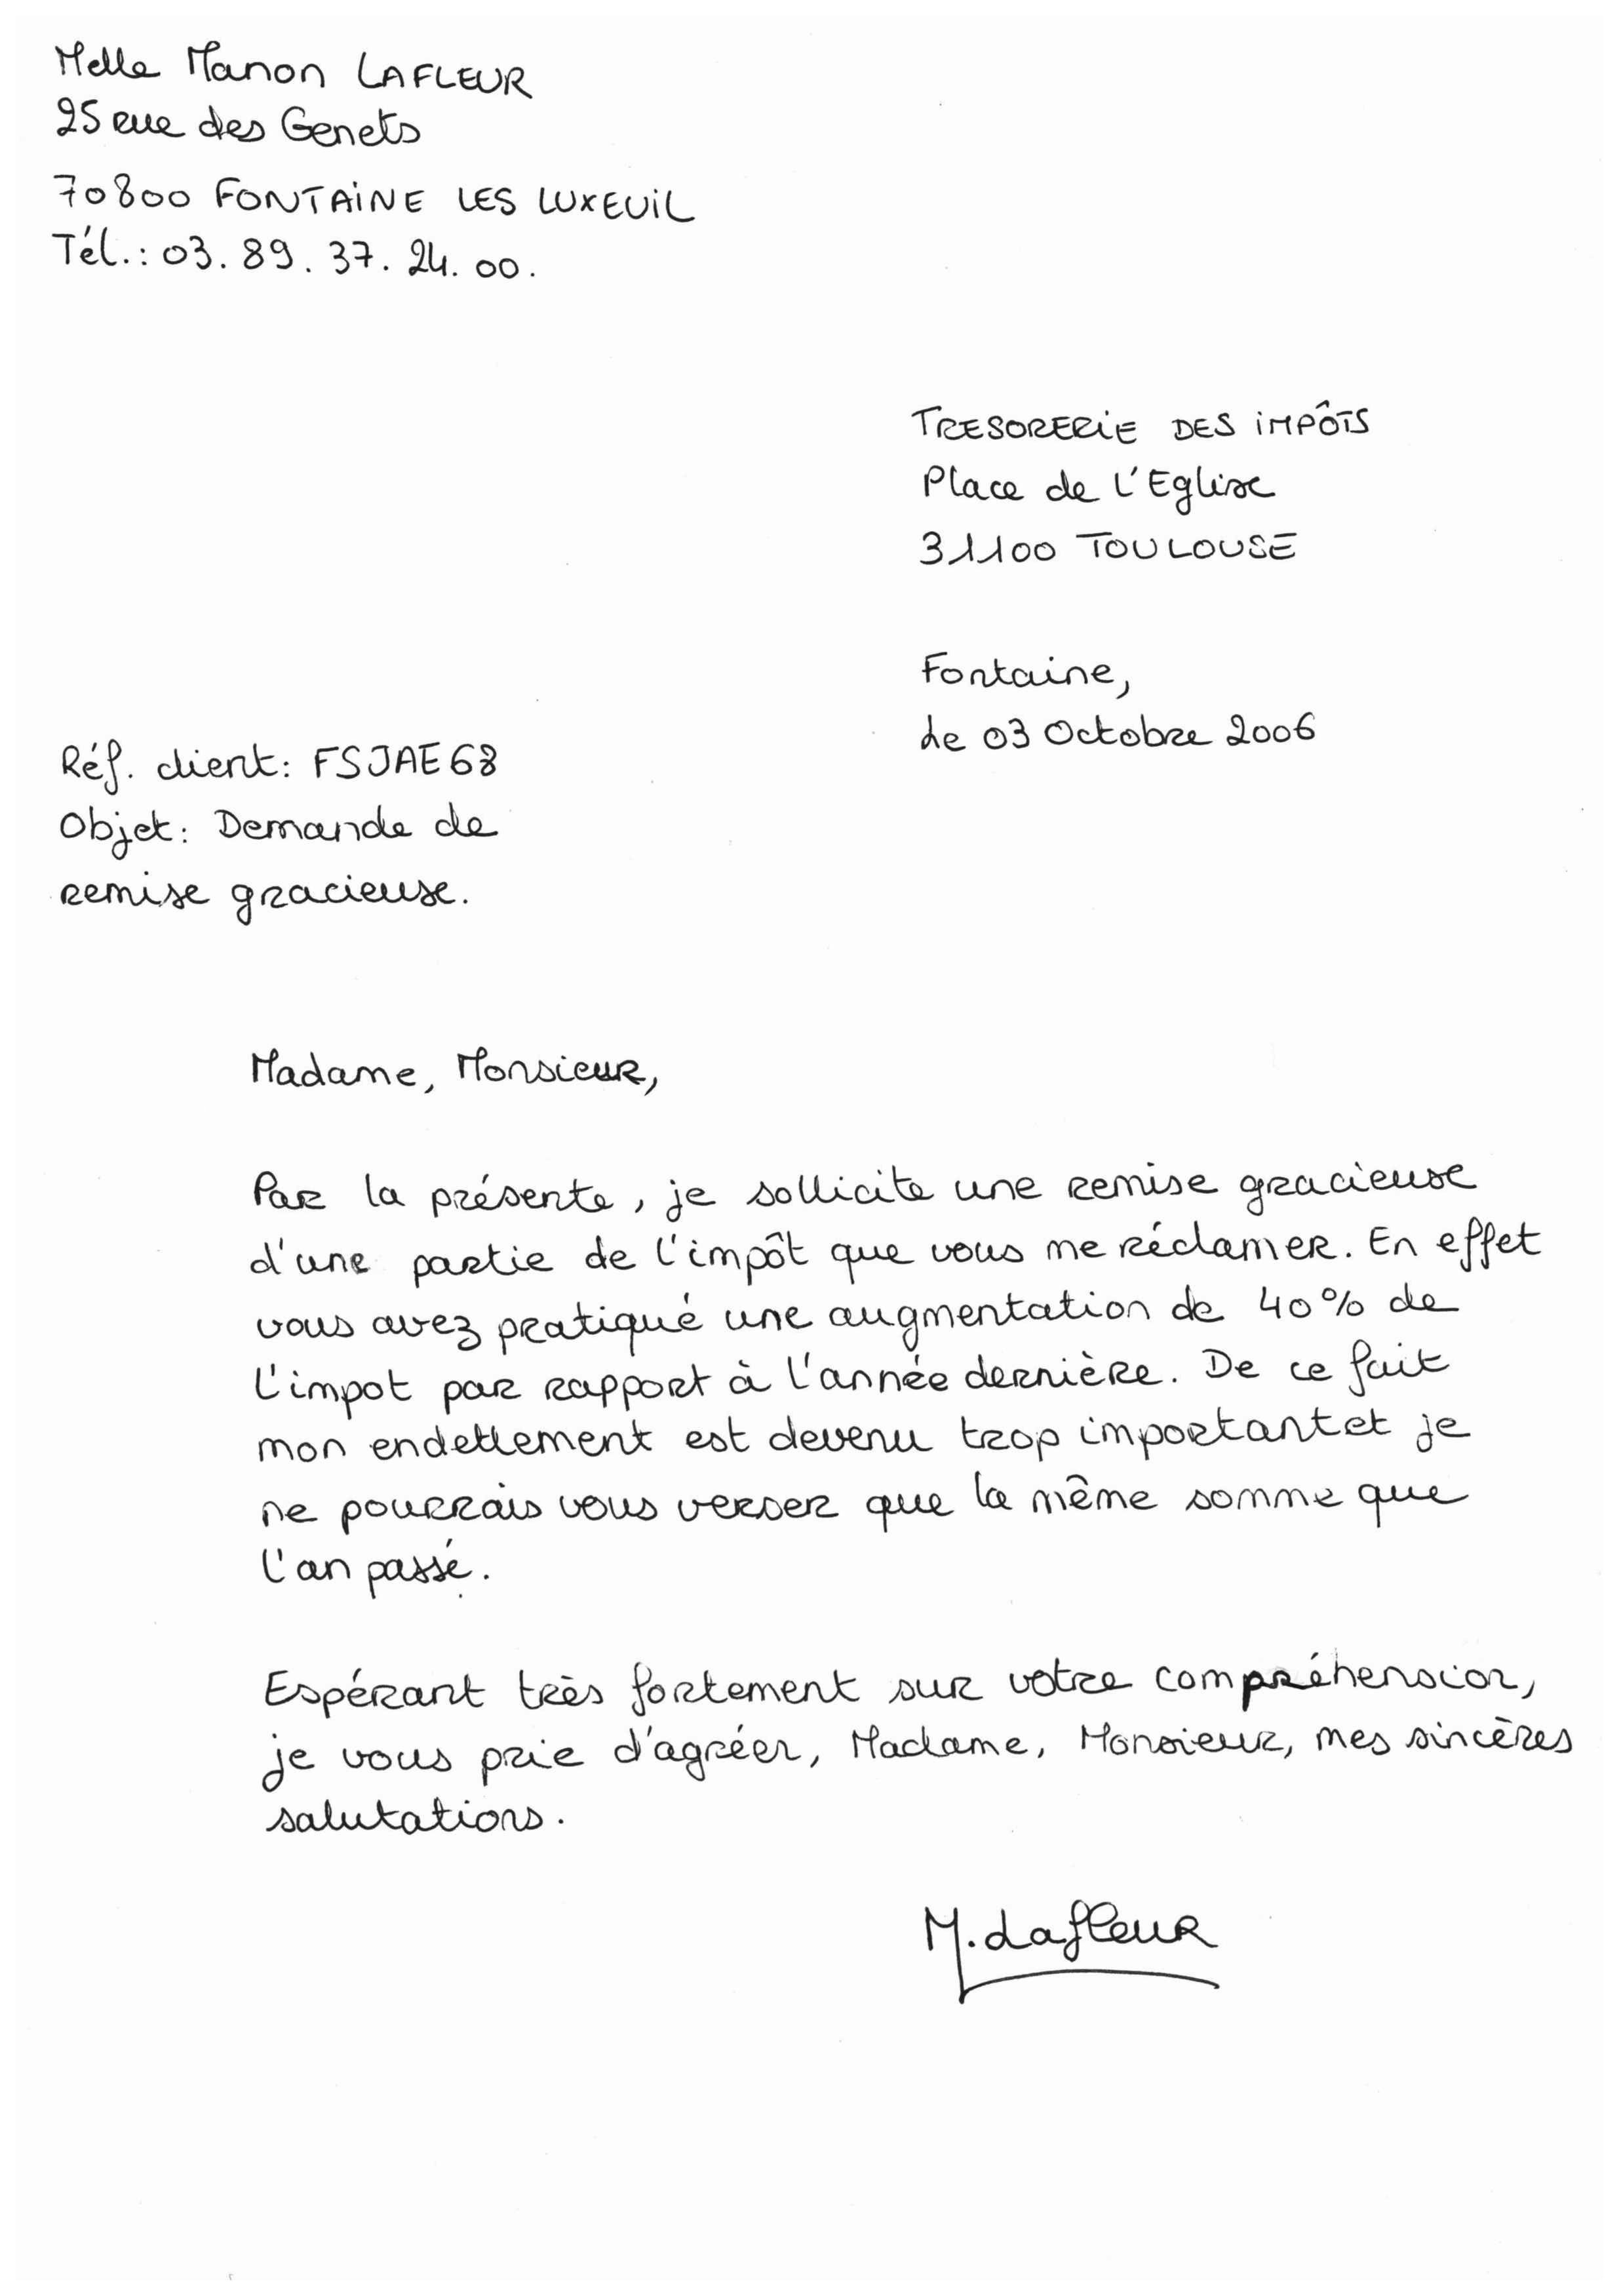 Melle Manon LAFLEUR
25 rue des Genets
70800 FONTAINE LES LUXEUIL
Tél.: 03. 89. 37. 24. 00.
TRESORERIE DES IMPÔTS
Place de L'Eglise
31100 TOULOUSE
Fontaine,
Le 03 Octobre 2006
Réf. client: FSJAE68
Objet: Demande de
remise gracieuse.
Madame, Monsieur,
Par la présente, je sollicite une remise gracieuse
d'une partie de l'impôt que vous me réclamer. En effet
vous avez pratiqué une augmentation de 40% de
l'impot par rapport à l'année dernière. De ce fait
mon endettement est devenu trop important et je
ne pourrais vous verser que la même somme que
l'an passé.
Espérant très fortement sur votre compréhension,
je vous prie d'agréer, Madame, Monsieur, mes sincères
salutations.
M. Lafleur